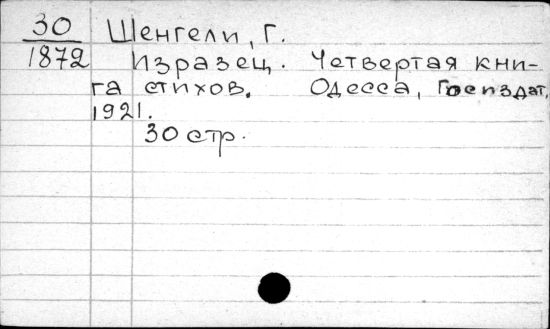 30 Шенгели, Г.
1872 Изразец. Четвертая кни-
га стихов. Одесса, Госиздат,
1921.
30 стр.